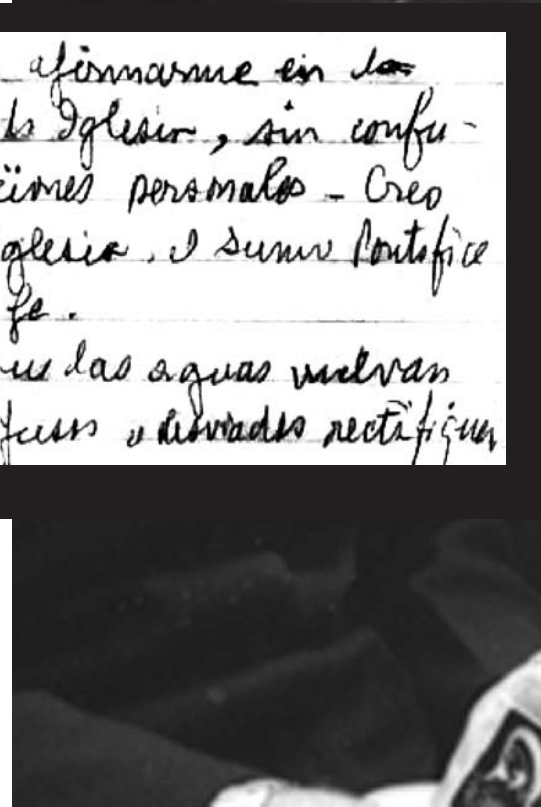 afirmarme en la
la Iglesia, sin confu-
iones personales - Creo
glesia, Sumo Pontifice
fe.
las aguas vuelvan
desviados rectifiquen